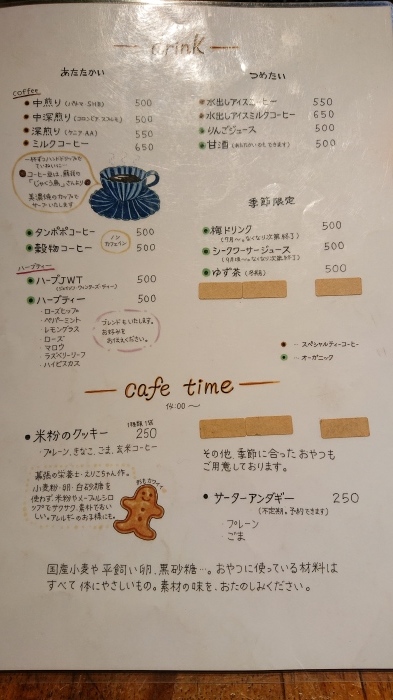 drink
あたたかい
coffee
中煎り (パルマ・SHB) 500
中深煎り 500
深煎り (ケニア AA) 550
ミルクコーヒー 650
一杯ずつハンドドリップで
ていねいに…
コーヒー豆は、
「じゃくう鳥」さんより
美濃焼のカップで
サーブいたします
タンポポコーヒー 500
穀物コーヒー 500
ノン
カフェイン
ハーブティー
ハーブJWT 500
ハーブティー 500
・ローズヒップ
・ペパーミント
レモングラス
・ローズ
・マロウ
ラズベリーリーフ
・ハイビスカス
ブレンドもいたします。
お好みを
お伝えください。
つめたい
水出しアイスコーヒー 550
水出しアイスミルクコーヒー 650
りんごジュース 500
甘酒 (あたたかいのもできます) 500
季節限定
梅ドリンク 500
(7月〜。なくなり次第終了)
シークワーサージュース 500
(9月頃〜。なくなり次第終了)
ゆず茶 (冬期) 500
… スペシャルティーコーヒー
… オーガニック
cafe time
14:00 〜
米粉のクッキー 1種類 1袋 250
・プレーン、きなこ、ごま、玄米コーヒー
幕張の栄養士・えりこちゃん作。
小麦粉・卵・白砂糖を
使わず、米粉やメープルシロ
ップでサクサク、素朴でおい
しい。アレルギーのお子様にも。
その他、季節に合ったおやつも
ご用意しております。
サーターアンダギー 250
(不定期。予約できます)
・プレーン
・ごま
国産小麦や平飼い卵、黒砂糖…。おやつに使っている材料は
すべて体にやさしいもの。素材の味を、おたのしみください。